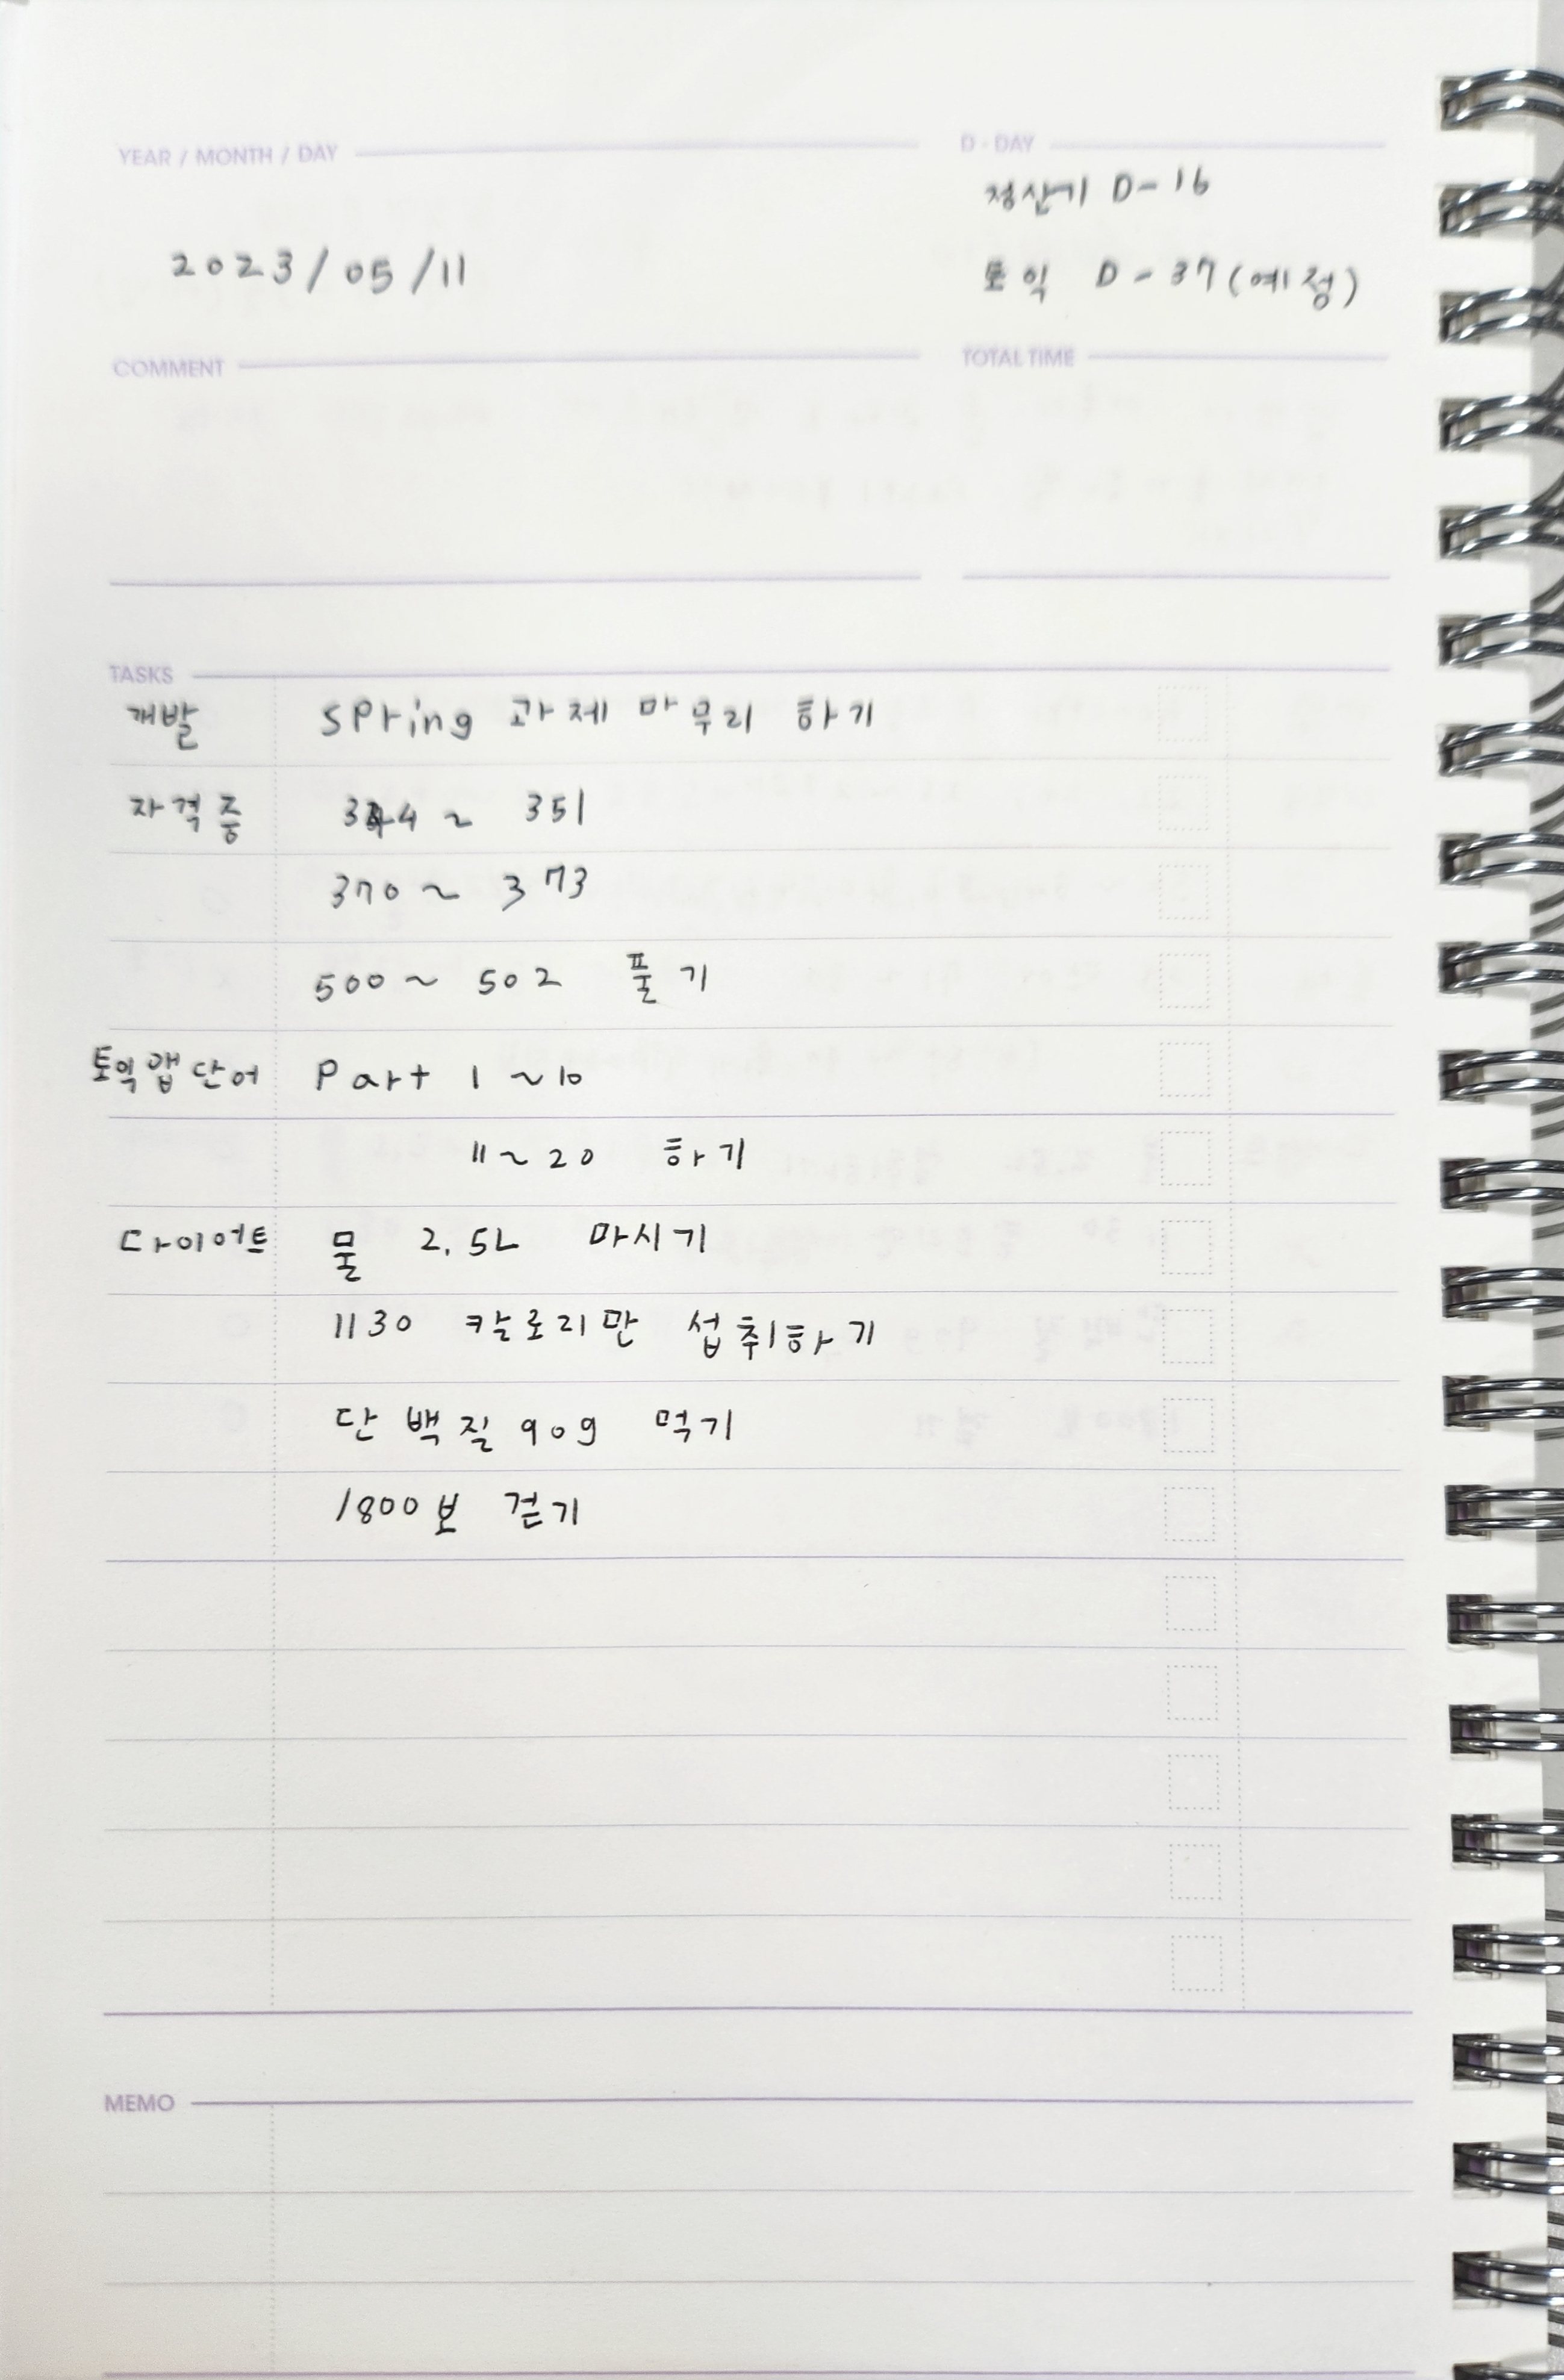 YEAR / MONTH / DAY
2023/05/11
D-DAY
정산기 D-16
토익 D-37(예정)
COMMENT
TOTAL TIME
TASKS
개발 Spring 과제 마무리 하기
자격증 344 ~ 351
370 ~ 373
500 ~ 502 풀기
토익앱단어 Part 1 ~ 10
11 ~ 20 하기
다이어트 물 2.5L 마시기
1130 칼로리만 섭취하기
단백질 90g 먹기
1800보 걷기
MEMO